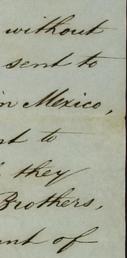 without
sent to
in Mexico,
to
they
Brothers,
of